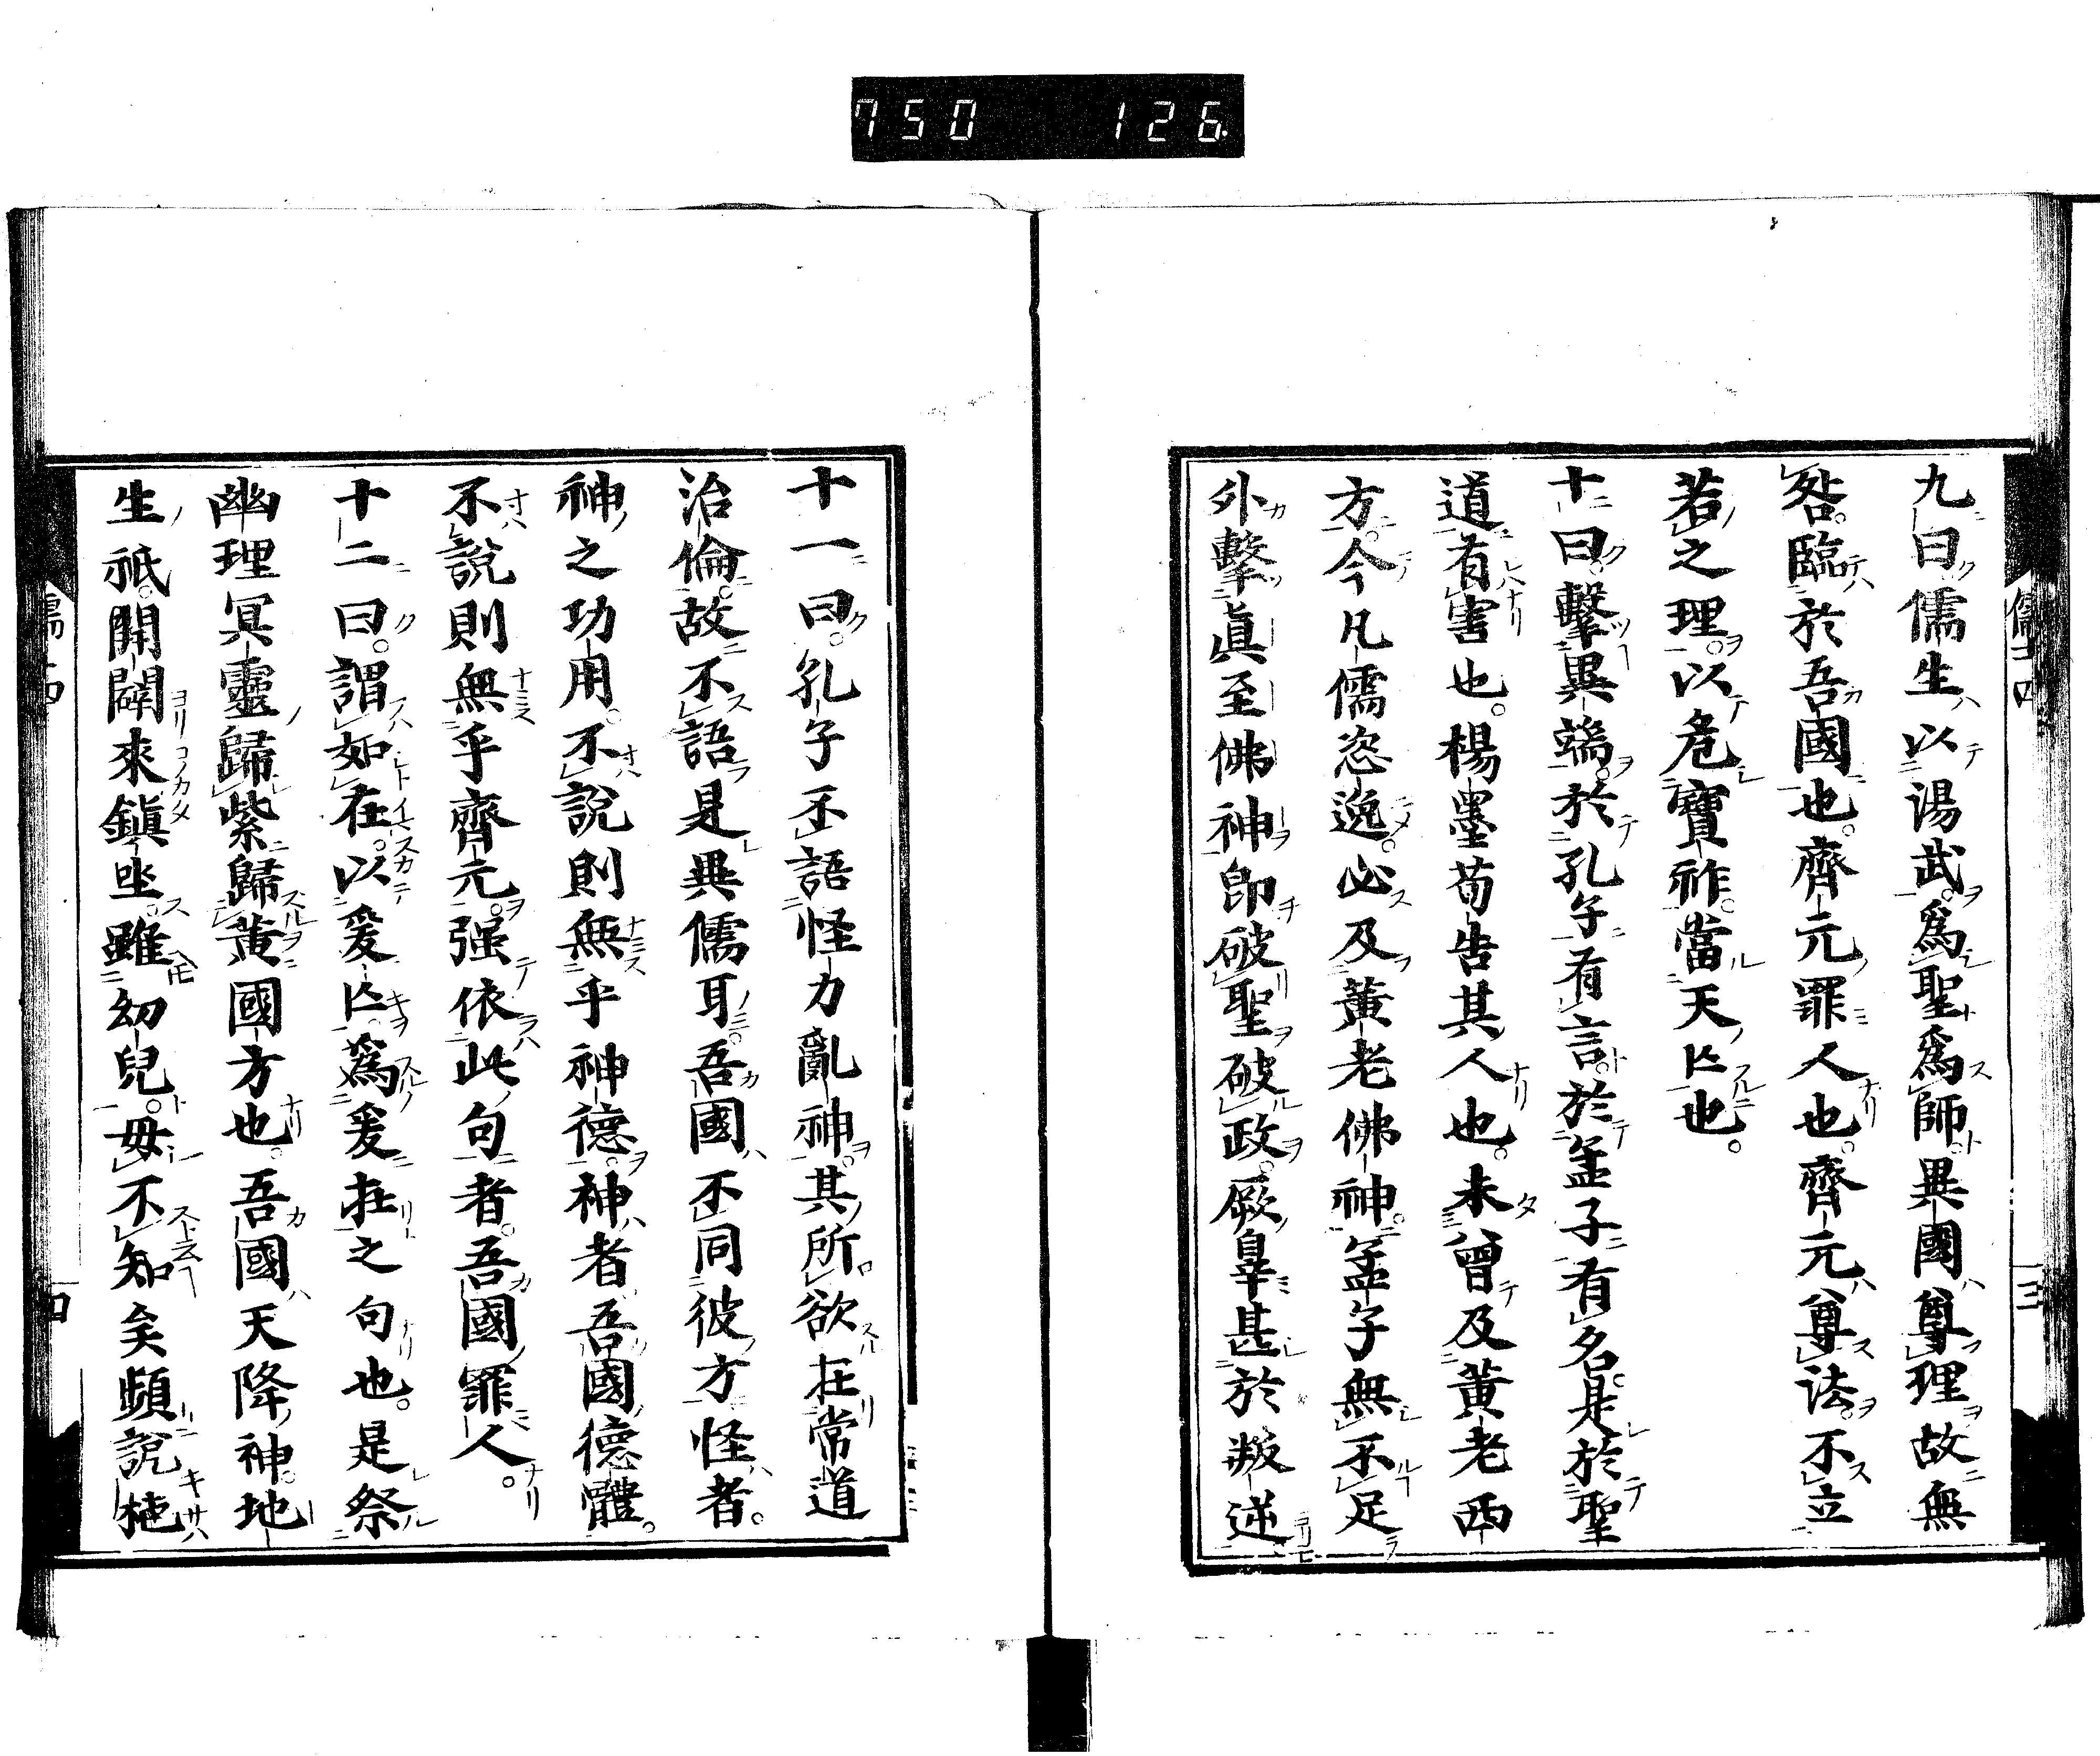 750 126
九曰儒生以湯武爲聖爲師異國尊理故無
咎臨於吾國也齊元罪人也齊元尊法不立
若之理以危寶祚當天亡也
十曰擊異端於孔子有言於孟子有名是於聖
道有害也楊墨荀告其人也未曾及黃老西
方今凡儒恣逸必及黃老佛神孟子無不足
外擊眞至佛神即破聖破政厥辠甚於叛逆
十一曰孔子不語怪力亂神其所欲在常道
治倫故不語是異儒耳吾國不同彼方怪者
神之功用不說則無乎神德神者吾國德體
不說則無乎齊元强依此句者吾國罪人
十二曰謂如在以爰亡爲爰在之句也是祭
幽理冥靈歸紫歸黃國方也吾國天降神地
生祇開闢來鎭坐雖幼兒毋不知矣頻說